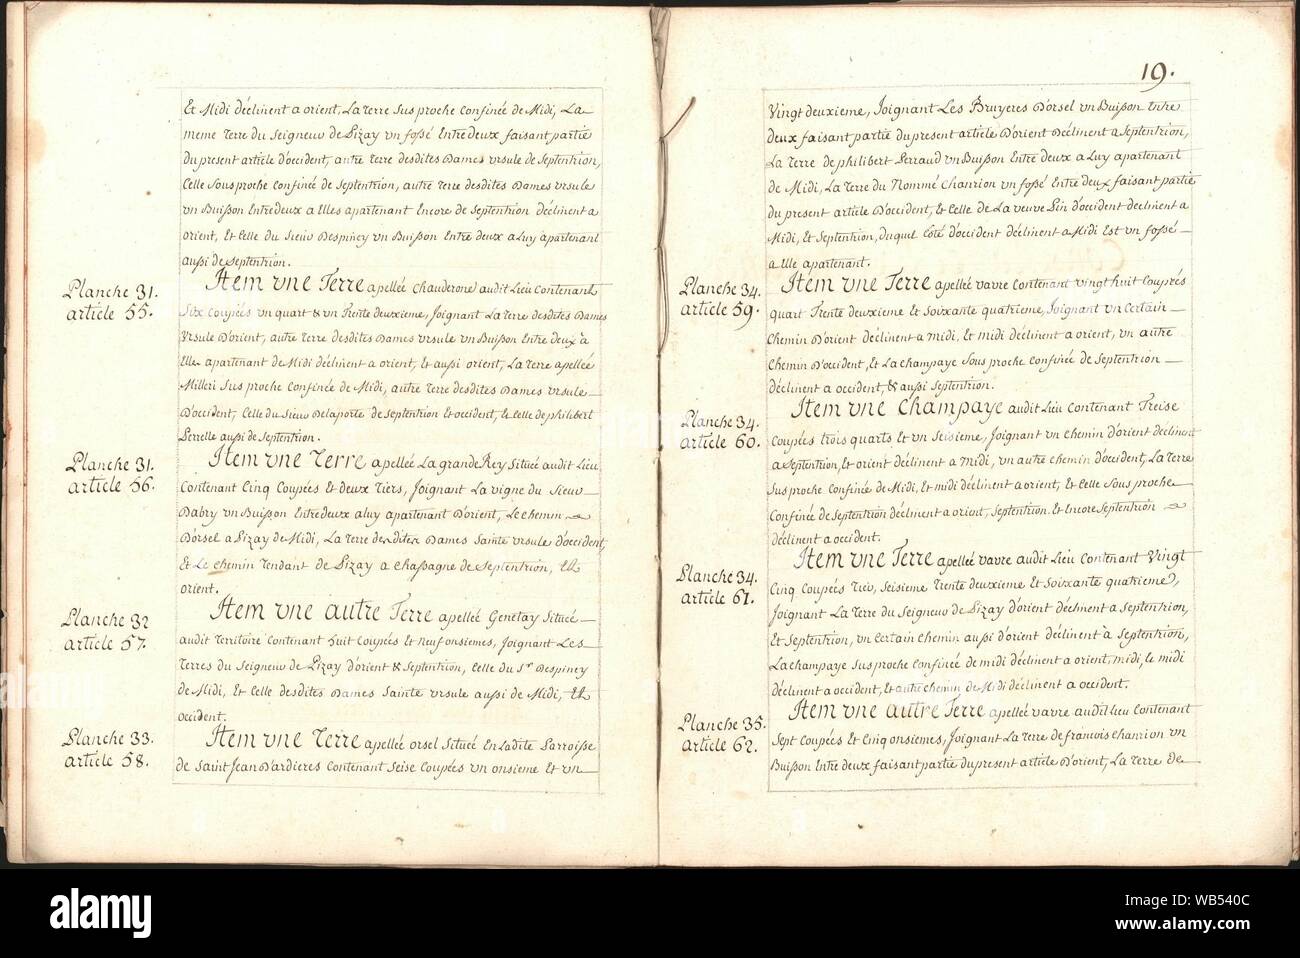 Et Midi déclinent a orient, La terre sus proche confinée de Midi, La
meme terre du Seigneur de Pizay un fossé Entre deux faisant partie
du present article d'occident, autre terre desdites Dames ursule de Septentrion,
Celle sous proche confinée de septentrion, autre terre desdites Dames ursule
un Buisson Entredeux a Elles apartenant Encore de Septentrion déclinent a
orient, Et Celle du Sieur Despiney un Buisson Entre deux a Luy apartenant
aussi de Septentrion.
Planche 31.
article 55.
Item une Terre apellée Chauderone audit Lieu Contenant
Six Coupées un quart & un Trente deuxieme, Joignant La terre desdites Dames
Ursule D'orient, autre terre desdites Dames ursule un Buisson Entre deux à
Elle apartenant de Midi déclinent a orient, Et aussi orient, La terre apellée
Milleri Sus proche Confinée de Midi, autre terre desdites Dames ursule
D'occident, Celle du Sieur Delaporte de septentrion Et occident, & Celle de philibert
Perrelle aussi de Septentrion.
Planche 31.
article 56.
Item une Terre apellée La grande Rey Située audit Lieu
Contenant Cinq Coupées Et deux Tiers, Joignant La vigne du Sieur
Dabry un Buisson Entredeux a luy apartenant D'orient, Le chemin
D'orsel a Pizay de Midi, La terre desdites Dames Sainte ursule D'occident,
Et Le chemin Tendant de Pizay a Chassagne de Septentrion, Et
orient.
Planche 32
article 57.
Item une autre Terre apellée Genetay Située
audit Territoire Contenant huit Coupées Et Neuf onsiemes, Joignant Les
Terres du Seigneur de Pizay d'orient & Septentrion, Celle du Sr Despiney
de Midi, Et Celle desdites Dames Sainte ursule aussi de Midi, Et
occident.
Planche 33.
article 58.
Item une Terre apellée orsel Située En Ladite Parroisse
de Saint Jean D'ardieres Contenant Seise Coupées un onsieme Et un
19.
Vingt deuxieme, Joignant Les Bruyeres D'orsel un Buisson Entre
deux faisant partie du present article D'orient Déclinent a Septentrion,
La Terre de philibert Perraud un Buisson Entre deux a Luy apartenant
de Midi, La Terre du Nommé Chanrion un fossé Entre deux faisant partie
du present article D'occident, Et Celle de La veuve Pin d'occident declinent a
Midi, Et Septentrion, Duquel Coté d'occident déclinent a Midi Est un fossé
a Elle apartenant.
Planche 34.
article 59.
Item une Terre apellée vavre Contenant vingt huit Coupées
quart Trente deuxieme Et Soixante quatrieme, Joignant un Certain
Chemin D'orient déclinent a midi, Et midi déclinent a orient, un autre
Chemin D'occident, Et La champaye Sous proche Confinée de Septentrion
déclinent a occident, & aussi Septentrion.
Planche 34.
article 60.
Item une Champaye audit Lieu Contenant Treise
Coupées trois quarts Et un Seisieme, Joignant un chemin D'orient déclinent
a Septentrion, Et orient déclinent a Midi, un autre Chemin d'occident, La Terre
Sus proche Confinée de Midi, Et midi déclinent a orient, Et Celle Sous proche
Confinée de Septentrion déclinent a orient, Septentrion. Et Encore Septentrion
déclinent a occident.
Planche 34.
article 61.
Item une Terre apellée vavre audit Lieu Contenant Vingt
Cinq Coupées Tiers, Seisieme Trente deuxieme Et Soixante quatrieme,
Joignant La Terre du Seigneur de Pizay D'orient déclinent a Septentrion,
Et Septentrion, un Certain chemin aussi d'orient déclinent à Septentrion,
La champaye Sus proche Confinée de midi déclinent a orient, midi, Et midi
déclinent a occident, Et autre chemin de Midi déclinent a occident.
Planche 35.
article 62.
Item une autre Terre apellée vavre audit Lieu Contenant
Sept Coupées Et Cinq onsiemes, Joignant La Terre de francois Chanrion un
Buisson Entre deux faisant partie du present article D'orient, La Terre de
alamy
WB540C
www.alamy.com